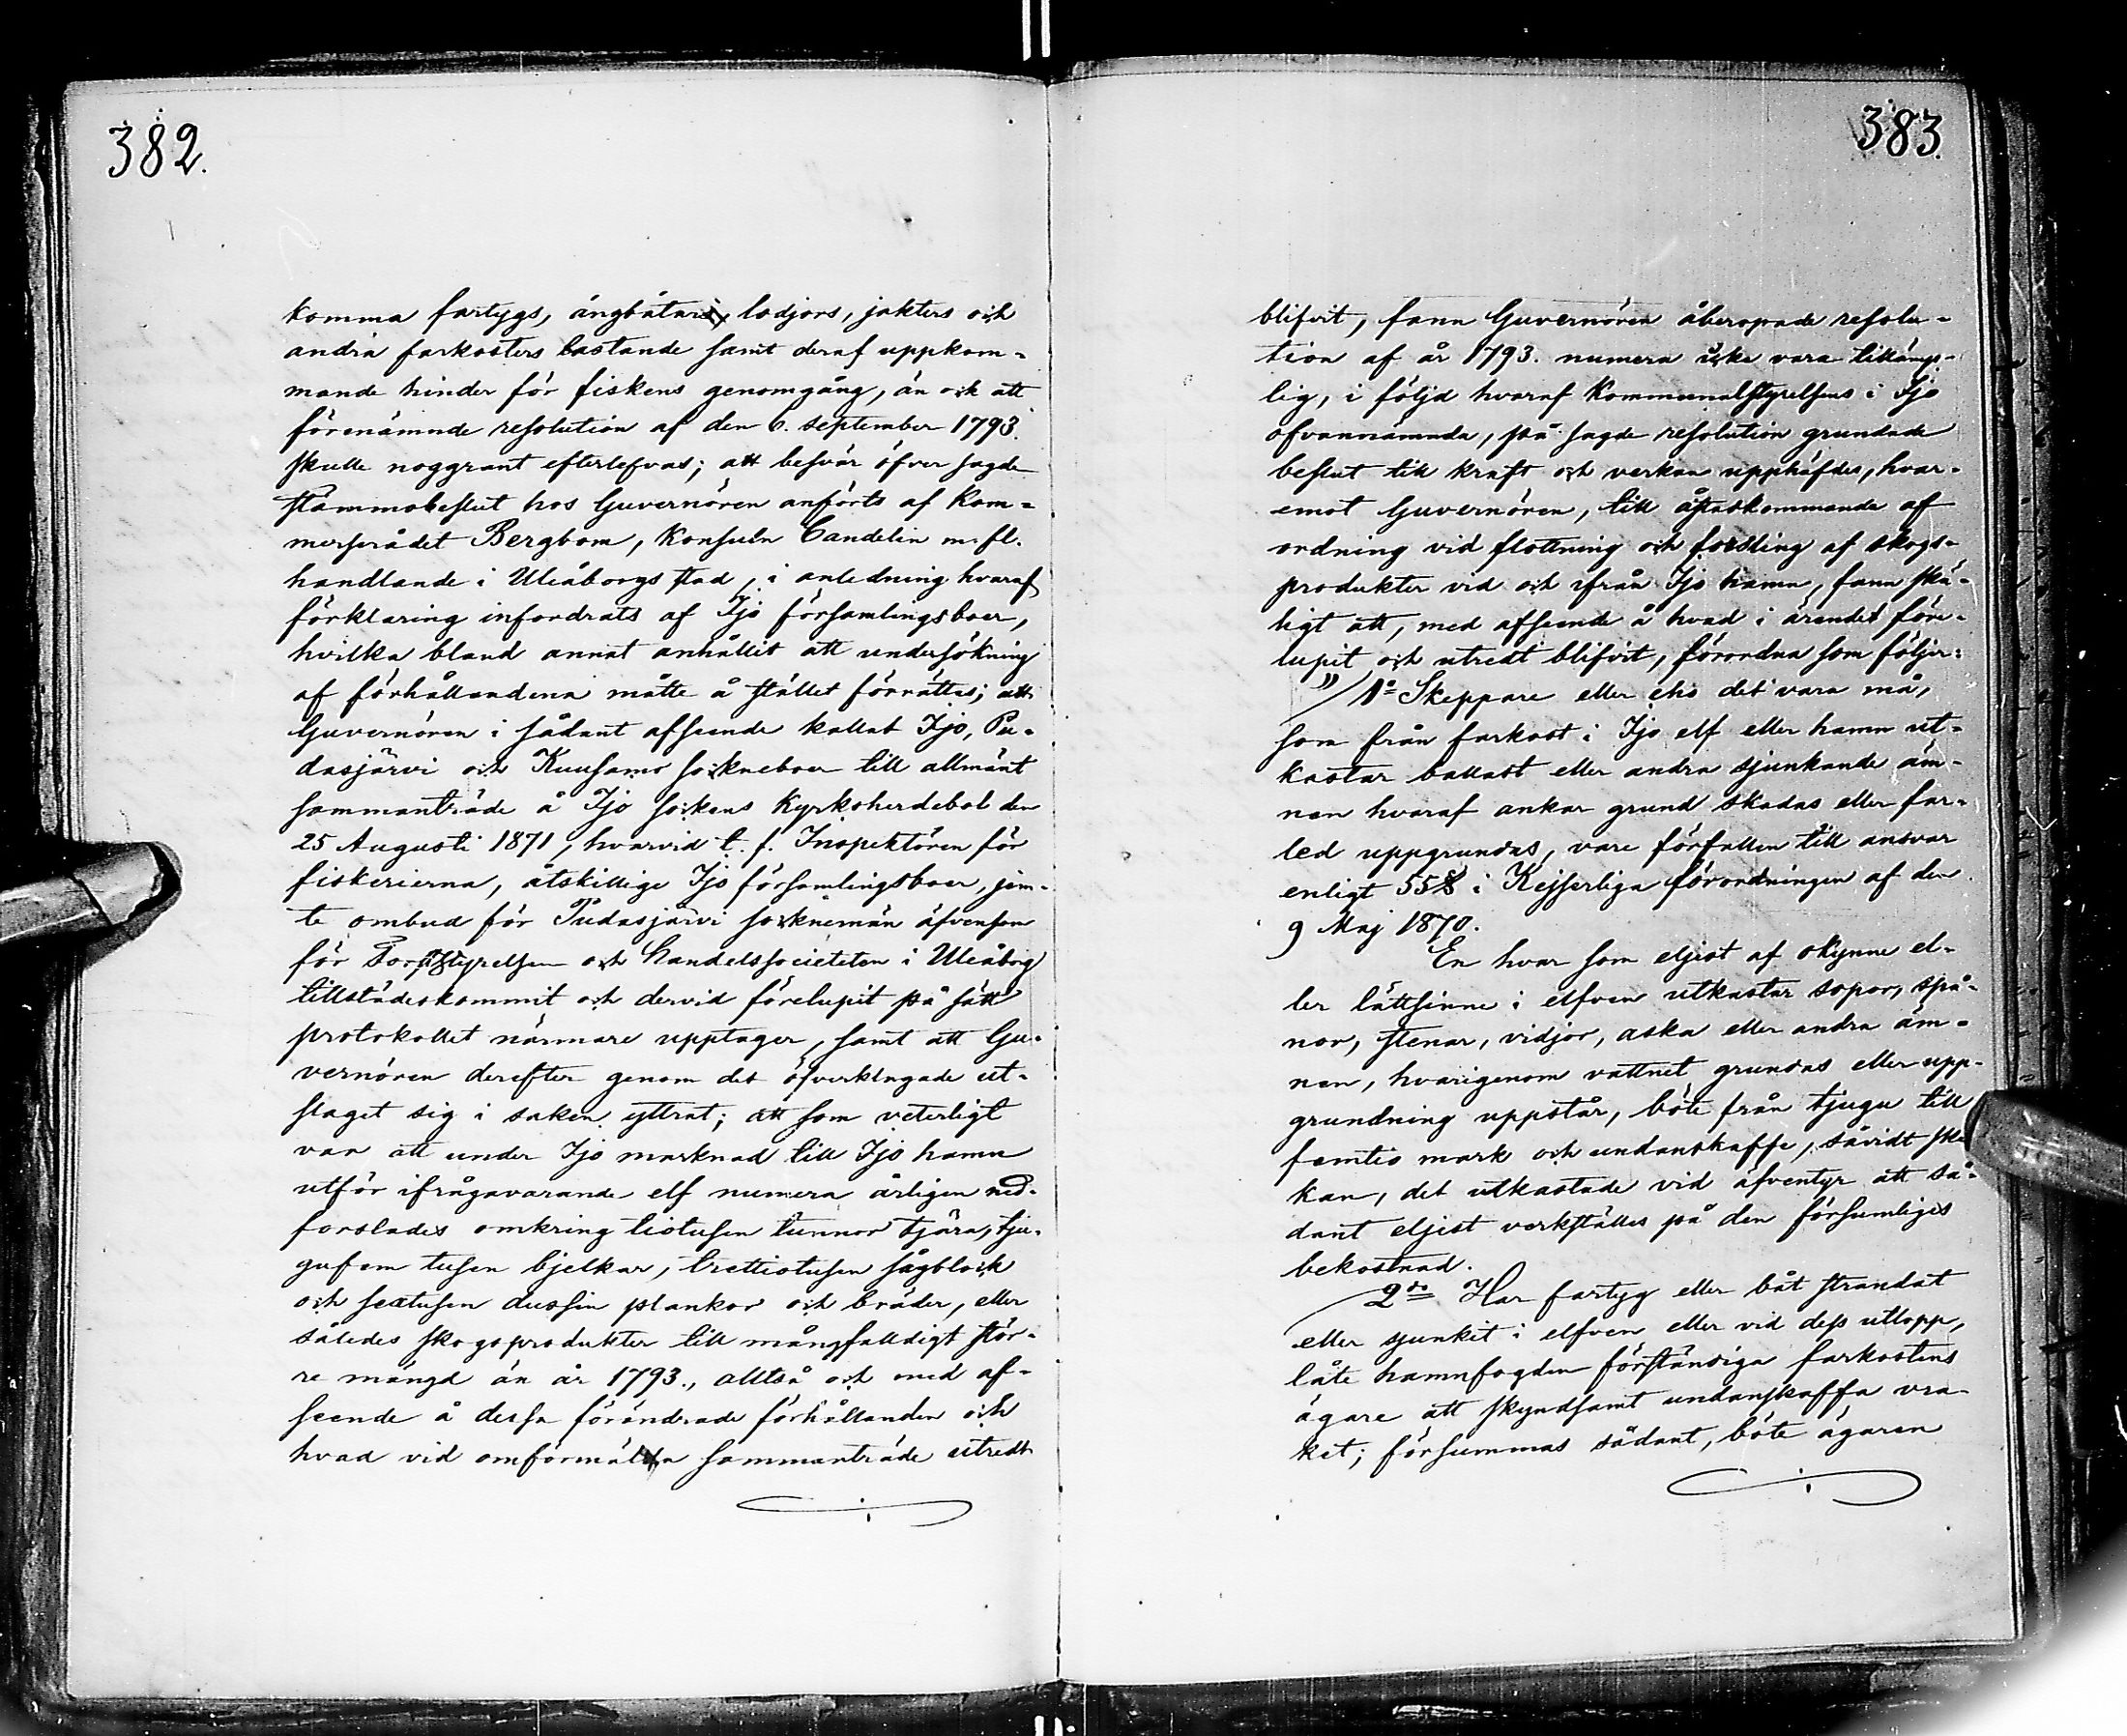 382.
komma fartygs, ångbåtars, lodjors, jakters och
andra farkosters lastande samt deraf uppkom-
mande hinder för fiskens genomgång, än ock att
förenämnde resolution af den 6. september 1793.
skulle noggrant efterlefvas; att besvär öfver sagde
stämmobeslut hos Guvernören anförts af Kom-
merserådet Bergbom, Konsuln Candelin m. fl.
handlande i Uleåborgs stad, i anledning hvaraf
förklaring infordrats af Ijo församlingsboer,
hvilka bland annat anhållit att undersökning
af förhållandena måtte å stället förrättas; att
Guvernören i sådant afseende kallat Ijo, Pu-
dasjärvi och Kuusamo sockneboer till allmänt
sammanträde å Ijo sockens Kyrkoherdebol den
25 Augusti 1871, hvarvid t. f. Inspektören för
fiskerierna, åtskillige Ijo församlingsboer, jem-
te ombud för Pudasjärvi socknemän äfvensom
för Forststyrelsen och handelssocieteten i Uleåborg
tillstädeskommit och dervid förelupit på sätt
protokollet närmare upptager, samt att Gu-
vernören derefter genom det öfverklagade ut-
slaget sig i saken yttrat; att som veterligt
var att under Ijo marknad till Ijo hamn
utför ifrågavarande elf numera årligen ned-
forslades omkring tiotusen tunnor tjära, tju-
gufem tusen bjelkar, trettiotusen sågblock
och sextusen dussin plankor och bräder, eller
således skogsprodukter till mångfalldigt stör-
re mängd än år 1793., alltså och med af-
seende å dessa förändrade förhållanden och
hvad vid omförmälda sammanträde utredt
383.
blifvit, fann Guvernören åberopade resolu-
tion af år 1793. numera icke vara tillämp-
lig, i följd hvaraf Kommunalstyrelsens i Ijo
ofvannämnda, på sagde resolution grundade
beslut till kraft och verkan upphäfdes, hvar-
emot Guvernören, till åstadkommande af
ordning vid flottning och forsling af skogs-
produkter vid och ifrån Ijo hamn, fann skä-
ligt att, med afseende å hvad i ärendet före-
lupit och utredt blifvit, förordna som följer:
" 1o Skeppare eller eho det vara må,
som från farkost i Ijo elf eller hamn ut-
kastar ballast eller andra sjunkande äm-
nen hvaraf ankar grund skadas eller far-
led uppgrundas, vare förfallen till ansvar
enligt 55 § i Kejserliga förordningen af den
9 Maj 1870.
En hvar som eljest af okynne el-
ler lättsinne i elfven utkastar sopor, spå-
nor, stenar, vidjor, aska eller andra äm-
nen, hvarigenom vattnet grundas eller upp-
grundning uppstår, böte från tjugu till
femtio mark och undanskaffe, såvidt ske
kan, det utkastade vid äfventyr att så-
dant eljest verkställes på den försumliges
bekostnad.
2do Har fartyg eller båt strandat
eller sjunkit i elfven eller vid dess utlopp,
låte hamnfogden förständiga farkostens
ägare att skyndsamt undanskaffa vra-
ket; försummas sådant, böte ägaren